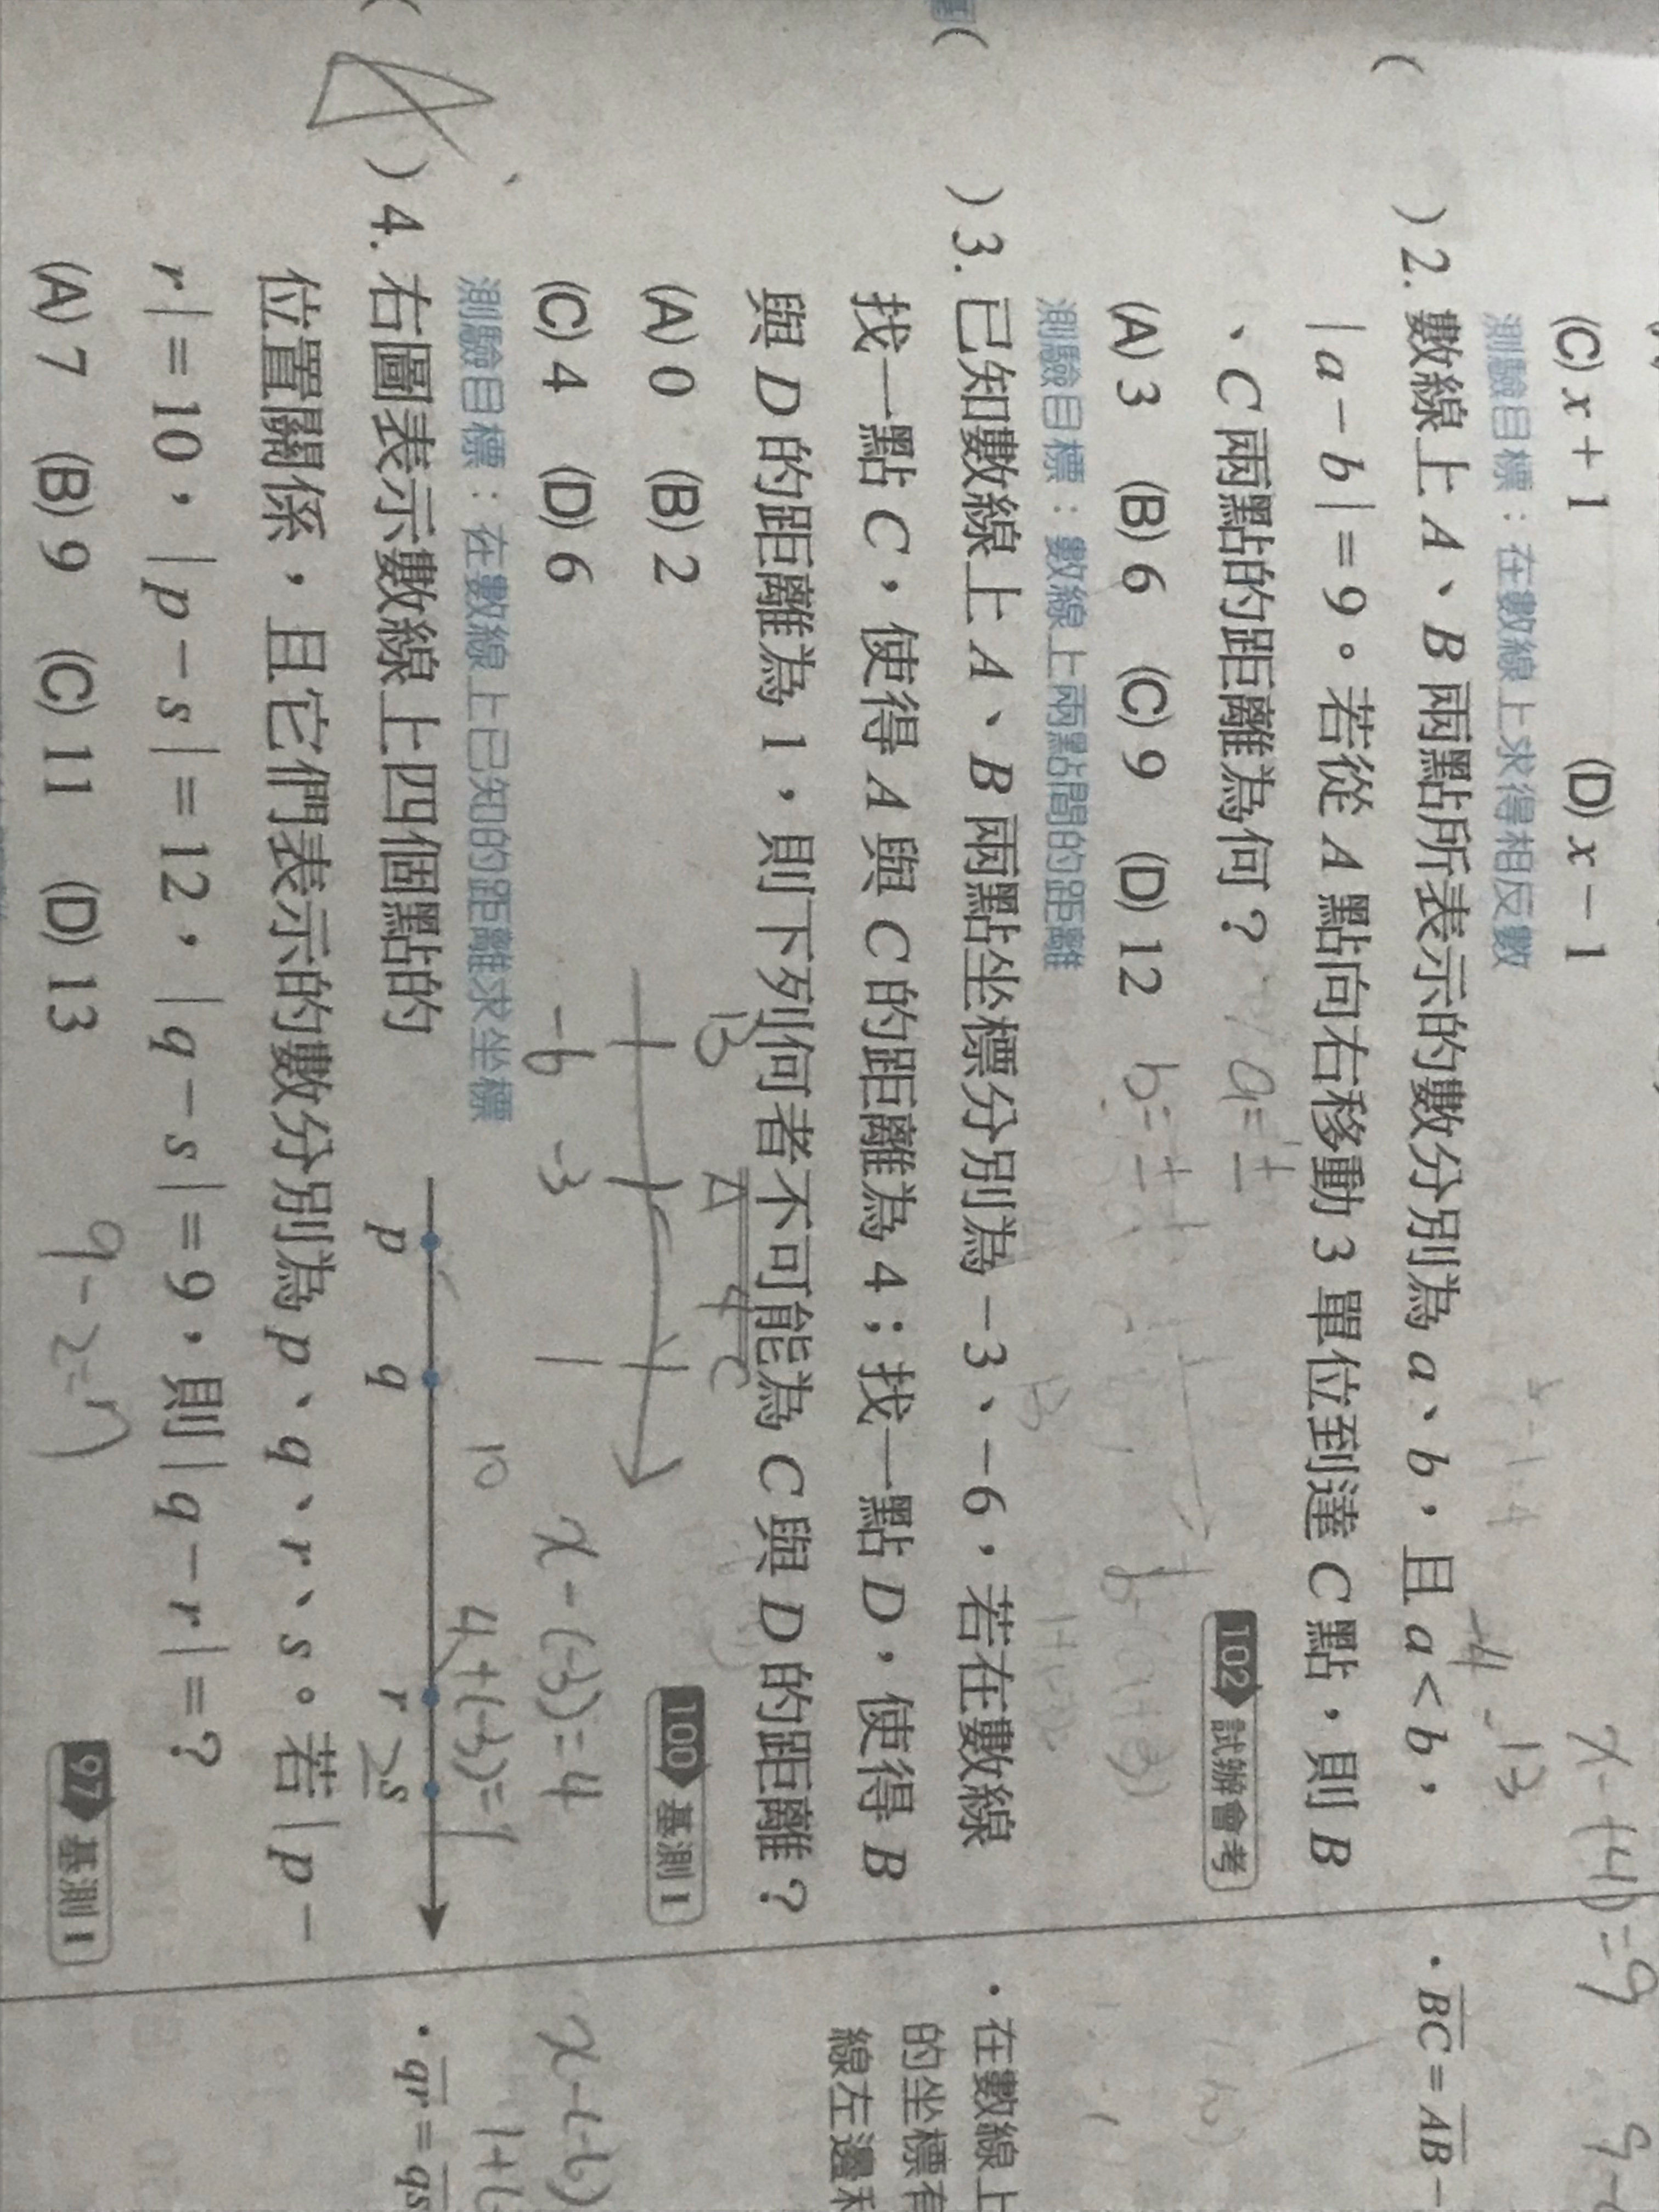 (C) x + 1 (D) x − 1
測驗目標：在數線上求得相反數
( ) 2. 數線上 A、B 兩點所表示的數分別為 a、b，且 a < b，
| a − b | = 9。若從 A 點向右移動 3 單位到達 C 點，則 B
、C 兩點的距離為何？
102 試辦會考
(A) 3 (B) 6 (C) 9 (D) 12
測驗目標：數線上兩點間的距離
( ) 3. 已知數線上 A、B 兩點坐標分別為 −3、−6，若在數線
找一點 C，使得 A 與 C 的距離為 4；找一點 D，使得 B
與 D 的距離為 1，則下列何者不可能為 C 與 D 的距離？
100 基測 1
(A) 0 (B) 2
(C) 4 (D) 6
B A 4 C
−6 −3 1
x − (−3) = 4
4 + (−3) = 1
測驗目標：在數線上已知的距離求坐標
( A ) 4. 右圖表示數線上四個點的
p q r s
10
2
位置關係，且它們表示的數分別為 p、q、r、s。若 | p −
r | = 10，| p − s | = 12，| q − s | = 9，則 | q − r | = ？
(A) 7 (B) 9 (C) 11 (D) 13
9 − 2 = 7
97 基測 1
· BC = AB −
· 在數線上
的坐標有
線左邊和
x − (−6)
· qr = qs